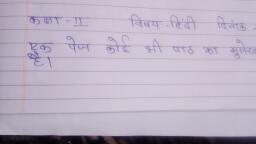 कक्षा-II विषय-हिंदी दिनांक-
एक पेज कोई भी पाठ का सुलेख
है।